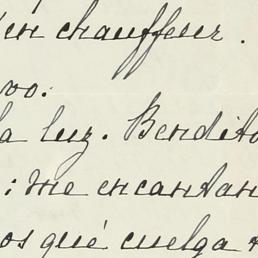 en chauffeur.
vo.
la luz. Bendito
: me encantan
os qué cuelga